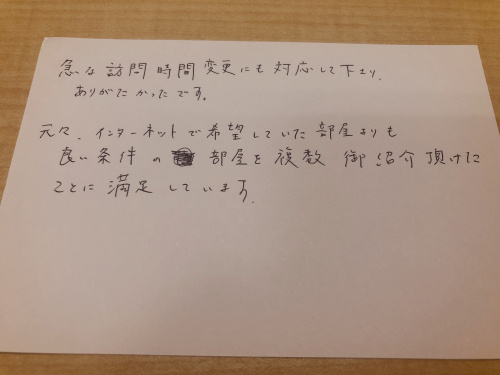 急な訪問時間変更にも対応して下さり、
ありがたかったです。
元々、インターネットで希望していた部屋よりも
良い条件の部屋を複数御紹介頂けた
ことに満足しています。